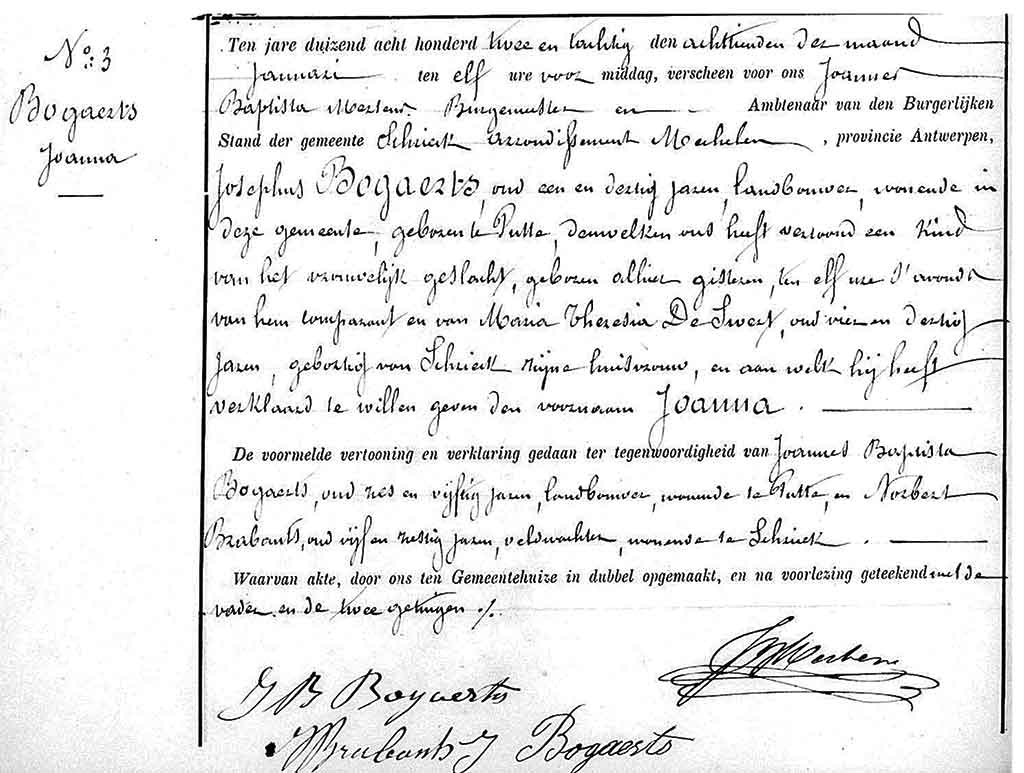 N.º 3
Bogaerts
Joanna
Ten jare duizend acht honderd twee en tachtig den achttienden der maand
Januari ten elf ure voor middag, verscheen voor ons Joannes
Baptista Mertens Burgemeester en Ambtenaar van den Burgerlijken
Stand der gemeente Schrieck arrondissement Mechelen, provincie Antwerpen,
Josephus Bogaerts, oud een en dertig jaren, landbouwer, wonende in
deze gemeente, geboren te Putte, denwelken ons heeft vertoond een Kind
van het vrouwelijk geslacht, geboren alhier gisteren, ten elf ure s'avonds
van hem comparant en van Maria Theresia De Swert, oud vier en dertig
jaren, geboortig van Schrieck zijne huisvrouw, en aan welk hij heeft
verklaard te willen geven den voornaam Joanna.
De voormelde vertooning en verklaring gedaan ter tegenwoordigheid van Joannes Baptista
Bogaerts, oud zes en vijftig jaren, landbouwer, wonende te Putte, en Norbert
Brabants, oud vijf en zestig jaren, veldwachter, wonende te Schrieck.
Waarvan akte, door ons ten Gemeentehuize in dubbel opgemaakt, en na voorlezing geteekend met de
vader en de twee getuigen ./.
J B Bogaerts
Brabants J Bogaerts